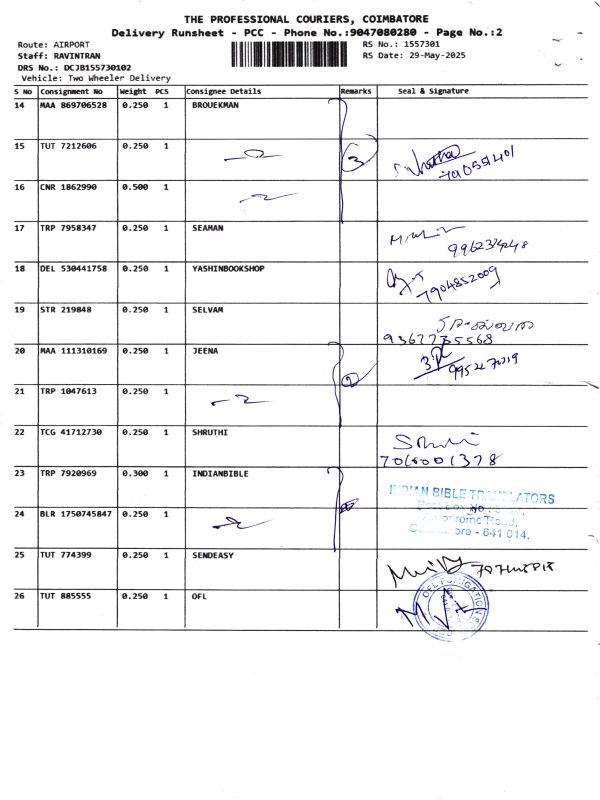 THE PROFESSIONAL COURIERS, COIMBATORE
Delivery Runsheet - PCC - Phone No.:9047080280 - Page No.:2
Route: AIRPORT RS No.: 1557301
Staff: RAVINTRAN RS Date: 29-May-2025
DRS No.: DCJB155730102
Vehicle: Two Wheeler Delivery
S No Consignment No Weight PCS Consignee Details Remarks Seal & Signature
14 MAA 869706528 0.250 1 BROUEKMAN
15 TUT 7212606 0.250 1 3
16 CNR 1862990 0.500 1
17 TRP 7958347 0.250 1 SEAMAN
18 DEL 530441758 0.250 1 YASHINBOOKSHOP 7904852009
19 STR 219848 0.250 1 SELVAM
9367735568
20 MAA 111310169 0.250 1 JEENA
21 TRP 1047613 0.250 1 2
22 TCG 41712730 0.250 1 SHRUTHI
23 TRP 7920969 0.300 1 INDIANBIBLE
INDIAN BIBLE TRANSLATORS
24 BLR 1750745847 0.250 1
Road,
641 014.
25 TUT 774399 0.250 1 SENDEASY
26 TUT 885555 0.250 1 OFL
OFL FUMIGATION